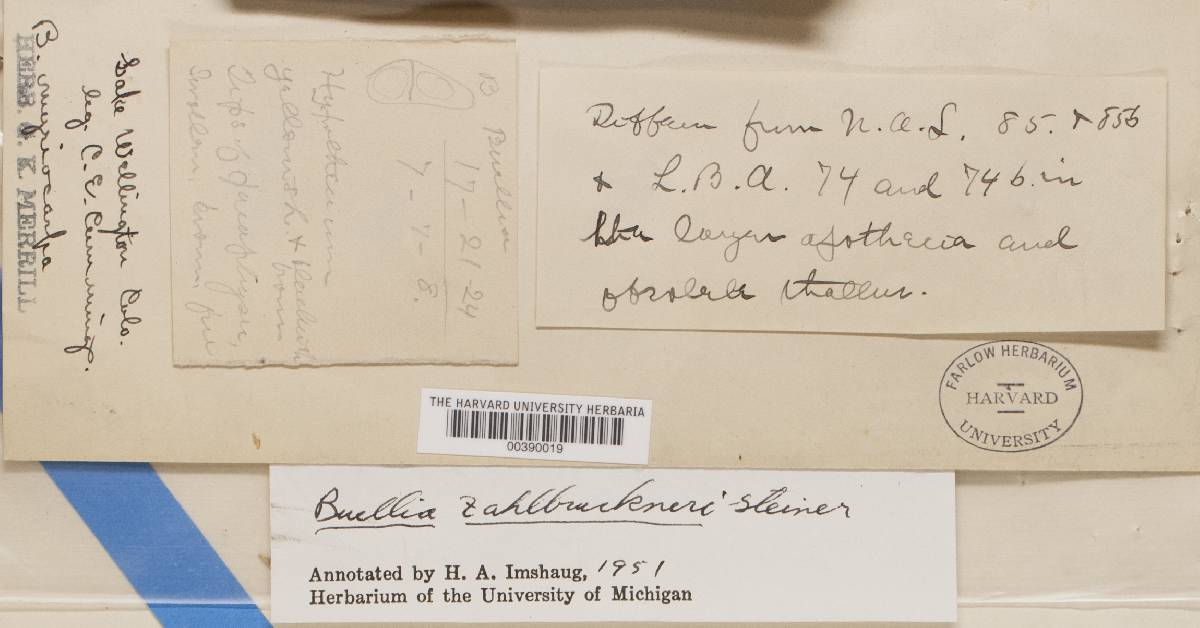 B. myriocarpa
HERB. G. K. MERRILL
Lake Wellington Colo.
leg. C. E. Cummings.
B Buellia
17-21-24
7-7-8.
Hypothecium
yellowish. & blackish
brown
Tips of paraphyses,
swollen, brown
Differs from N.A.L. 85. & 85b
& L.B.A. 74 and 74b. in
larger apothecia and
thallus.
FARLOW HERBARIUM
HARVARD
UNIVERSITY
THE HARVARD UNIVERSITY HERBARIA
00390019
Buellia zahlbruckneri Steiner
Annotated by H. A. Imshaug, 1951
Herbarium of the University of Michigan